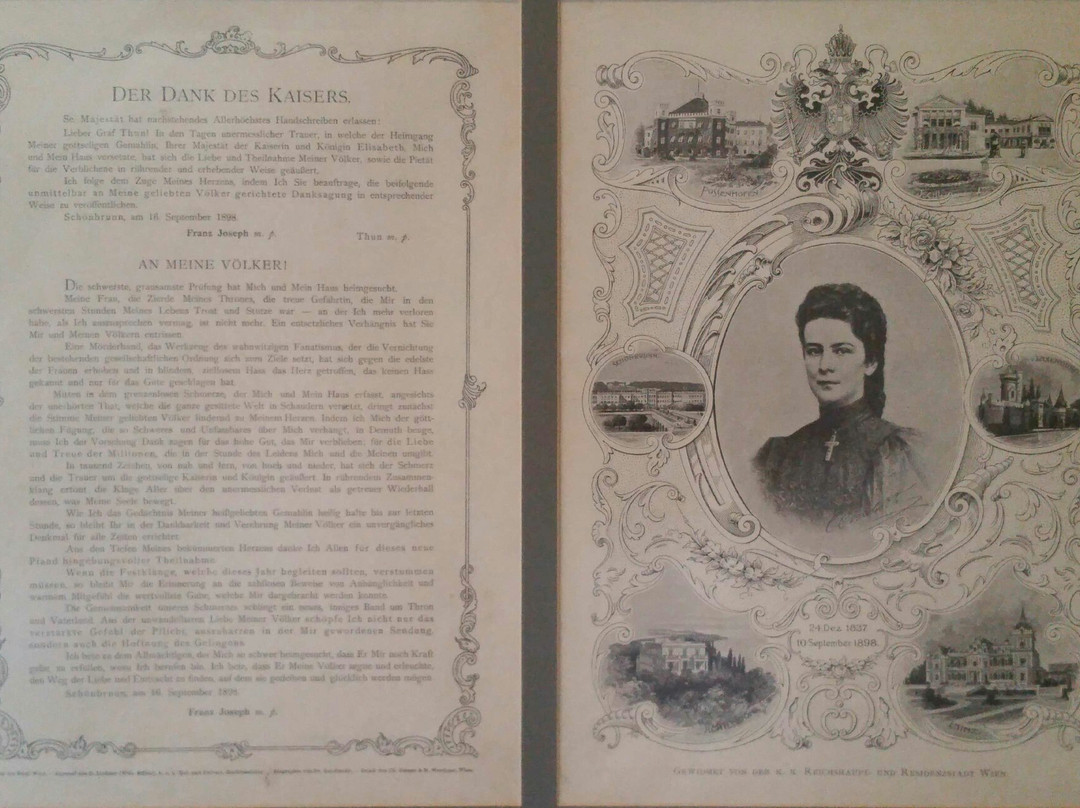 DER DANK DES KAISERS.
Se. Majestät hat nachstehendes Allerhöchstes Handschreiben erlassen:
Lieber Graf Thun! In den Tagen unermesslicher Trauer, in welche der Heimgang
Meiner gottseligen Gemahlin, Ihrer Majestät der Kaiserin und Königin Elisabeth, Mich
und Mein Haus versetzte, hat sich die Liebe und Theilnahme Meiner Völker, sowie die Pietät
für die Verblichene in rührender und erhebender Weise geäußert.
Ich folge dem Zuge Meines Herzens, indem Ich Sie beauftrage, die beifolgende
unmittelbar an Meine geliebten Völker gerichtete Danksagung in entsprechender
Weise zu veröffentlichen.
Schönbrunn, am 16. September 1898.
Franz Joseph m. p.
Thun m. p.
AN MEINE VÖLKER!
Die schwerste, grausamste Prüfung hat Mich und Mein Haus heimgesucht.
Meine Frau, die Zierde Meines Thrones, die treue Gefährtin, die Mir in den
schwersten Stunden Meines Lebens Trost und Stütze war — an der Ich mehr verloren
habe, als Ich auszusprechen vermag, ist nicht mehr. Ein entsetzliches Verhängnis hat Sie
Mir und Meinen Völkern entrissen.
Eine Mörderhand, das Werkzeug des wahnwitzigen Fanatismus, der die Vernichtung
der bestehenden gesellschaftlichen Ordnung sich zum Ziele setzt, hat sich gegen die edelste
der Frauen erhoben und in blindem, ziellosem Hass das Herz getroffen, das keinen Hass
gekannt und nur für das Gute geschlagen hat.
Mitten in dem grenzenlosen Schmerze, der Mich und Mein Haus erfasst, angesichts
der unerhörten That, welche die ganze gesittete Welt in Schaudern versetzt, dringt zunächst
die Stimme Meiner geliebten Völker lindernd zu Meinem Herzen. Indem Ich Mich der gött-
lichen Fügung, die so Schweres und Unfassbares über Mich verhängt, in Demuth beuge,
muss Ich der Vorsehung Dank sagen für das hohe Gut, das Mir verblieben, für die Liebe
und Treue der Millionen, die in der Stunde des Leidens Mich und die Meinen umgibt.
In tausend Zeichen, von nah und fern, von hoch und nieder, hat sich der Schmerz
und die Trauer um die gottselige Kaiserin und Königin geäußert. In rührendem Zusammen-
klang ertönt die Klage Aller über den unermesslichen Verlust als getreuer Wiederhall
dessen, was Meine Seele bewegt.
Wie Ich das Gedächtnis Meiner heißgeliebten Gemahlin heilig halte bis zur letzten
Stunde, so bleibt Ihr in der Dankbarkeit und Verehrung Meiner Völker ein unvergängliches
Denkmal für alle Zeiten errichtet.
Aus den Tiefen Meines bekümmerten Herzens danke Ich Allen für dieses neue
Pfand hingebungsvoller Theilnahme.
Wenn die Festklänge, welche dieses Jahr begleiten sollten, verstummen
müssen, so bleibt Mir die Erinnerung an die zahllosen Beweise von Anhänglichkeit und
warmem Mitgefühl die wertvollste Gabe, welche Mir dargebracht werden konnte.
Die Gemeinsamkeit unseres Schmerzes schlingt ein neues, inniges Band um Thron
und Vaterland. Aus der unwandelbaren Liebe Meiner Völker schöpfe Ich nicht nur das
verstärkte Gefühl der Pflicht, auszuharren in der Mir gewordenen Sendung,
sondern auch die Hoffnung des Gelingens.
Ich bete zu dem Allmächtigen, der Mich so schwer heimgesucht, dass Er Mir noch Kraft
gebe, zu erfüllen, wozu Ich berufen bin. Ich bete, dass Er Meine Völker segne und erleuchte,
den Weg der Liebe und Eintracht zu finden, auf dem sie gedeihen und glücklich werden mögen.
Schönbrunn, am 16. September 1898.
Franz Joseph m. p.
24 Dez. 1837.
10 September 1898.
GEWIDMET VON DER K. K. REICHSHAUPT- UND RESIDENZSTADT WIEN.